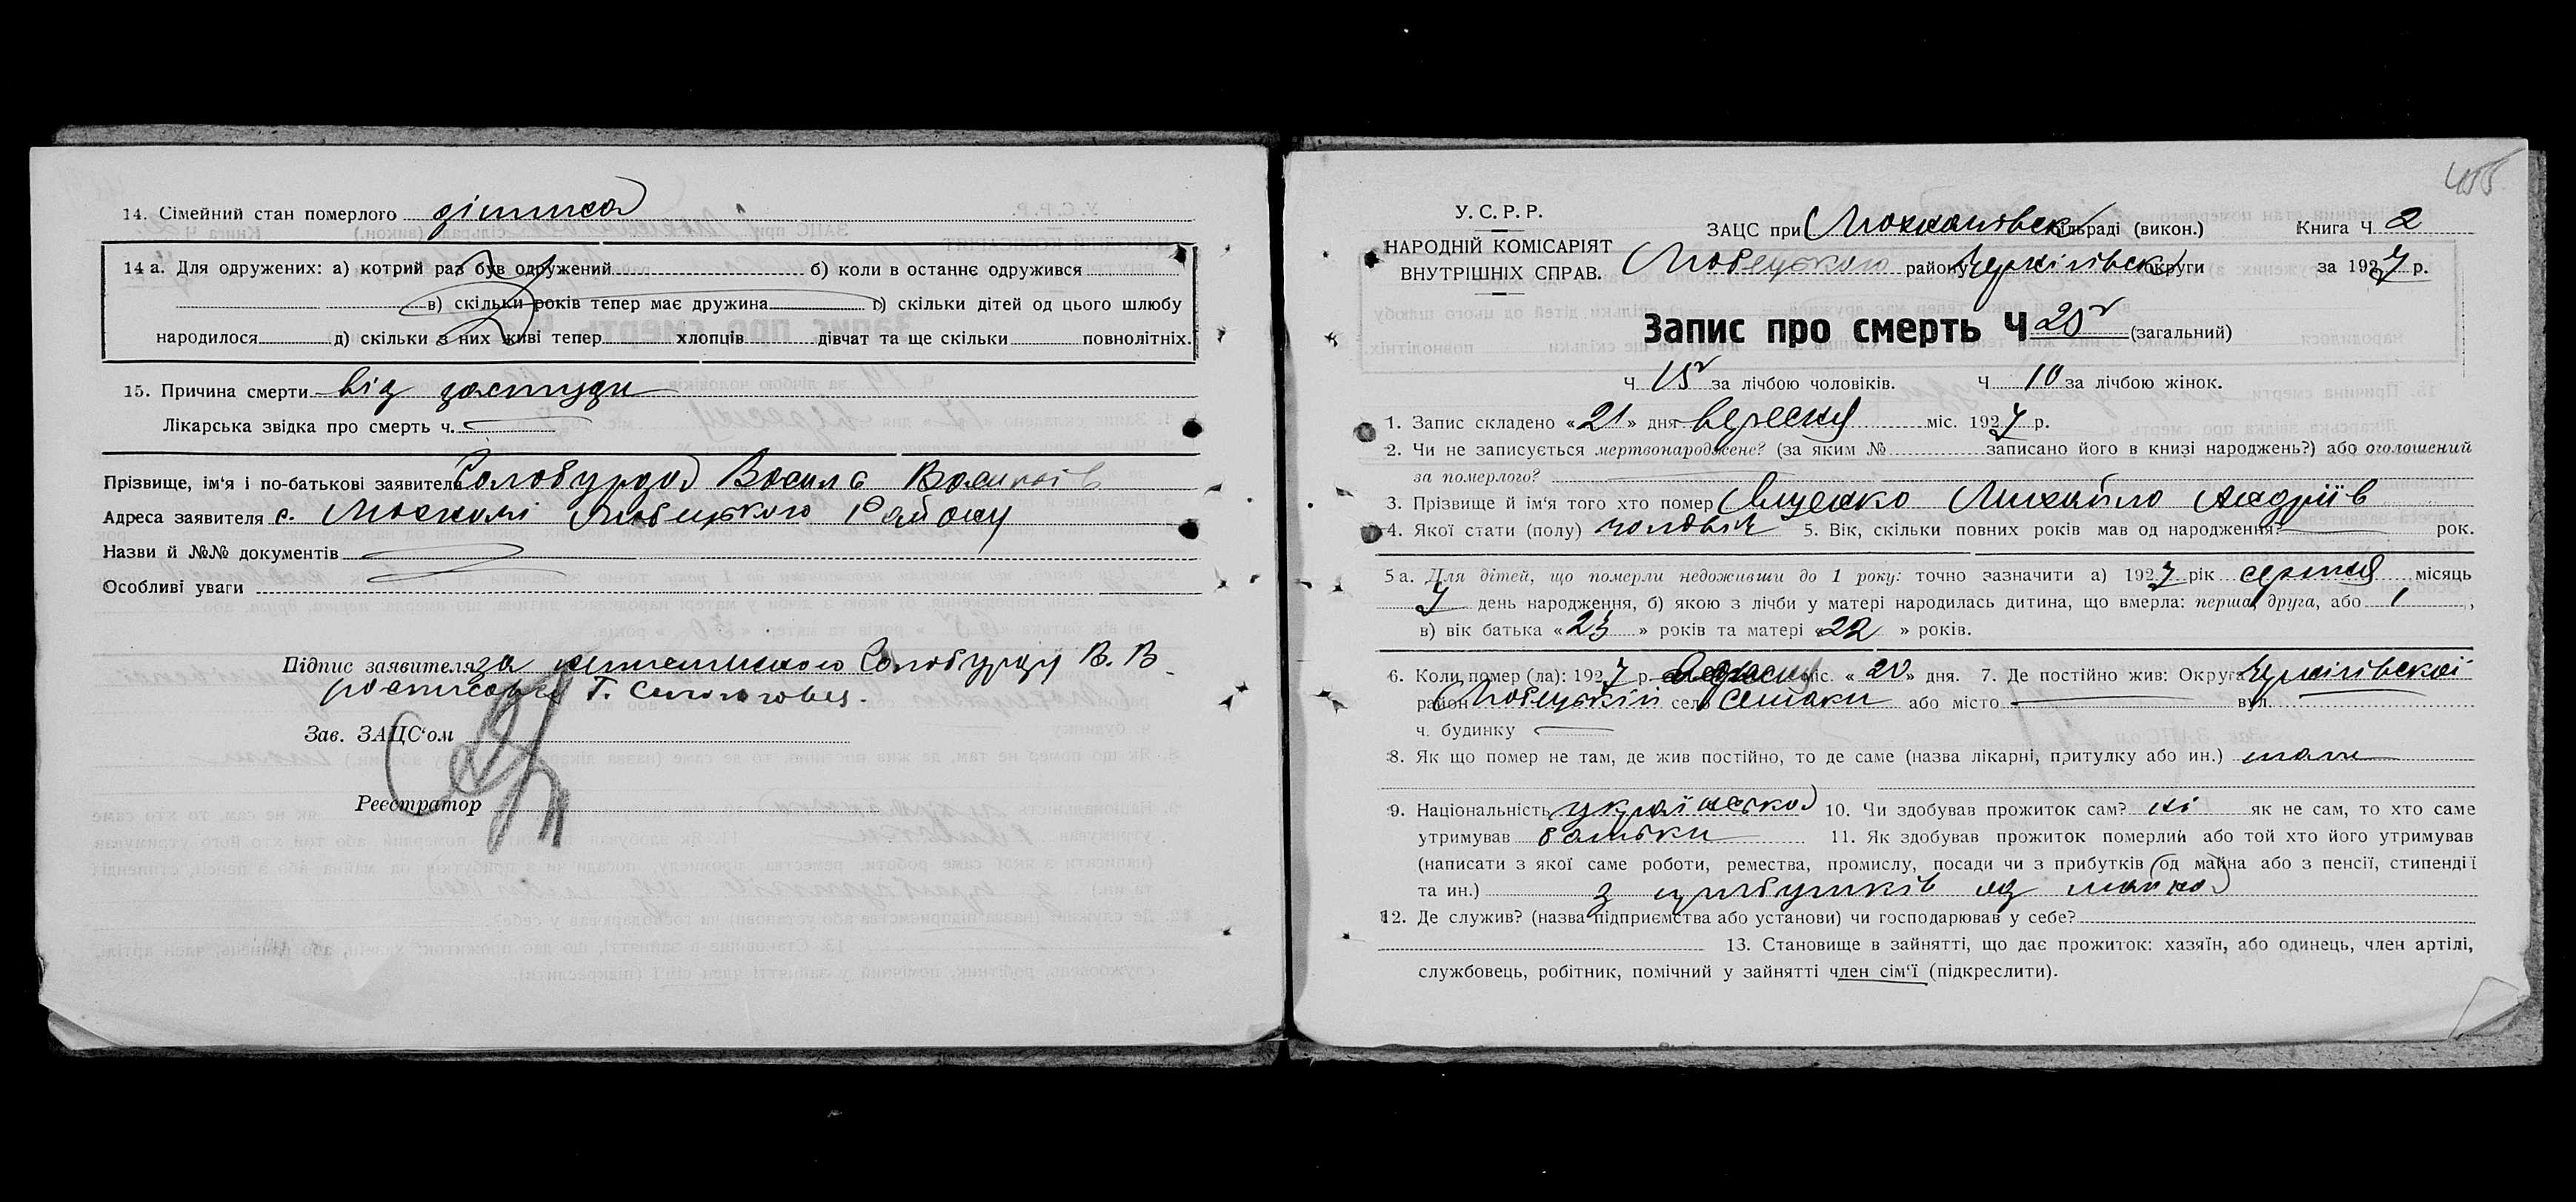 14. Сімейний стан померлого дитина
14 а. Для одружених: а) котрий раз був одружений б) коли в останнє одружився
в) скільки років тепер має дружина г) скільки дітей од цього шлюбу
народилося д) скільки з них живі тепер хлопців дівчат та ще скільки повнолітніх.
15. Причина смерти від простуди
Лікарська звідка про смерть ч.
Прізвище, ім'я і по-батькові заявителя Голобурда Василь Васильїв
Адреса заявителя с. Мохначі Любецького Району
Назви й №№ документів
Особливі уваги
Підпис заявителя за неписьменого Голобурду В. В
росписався Г.
Зав. ЗАЦС'ом
Реєстратор
455
У. С. Р. Р.
НАРОДНІЙ КОМІСАРІЯТ
ВНУТРІШНІХ СПРАВ.
ЗАЦС при сільраді (викон.) Книга Ч 2
Любецького району Чернігівськ округи за 1927 р.
Запис про смерть Ч 25 (загальний)
Ч 15 за лічбою чоловіків. Ч 10 за лічбою жінок.
1. Запис складено «21» дня вересня міс. 1927 р.
2. Чи не записується мертвонароджене? (за яким № записано його в книзі народжень?) або оголошений
за померлого?
3. Прізвище й ім'я того хто помер Іщенко Михайло Андріїв
4. Якої стати (полу) чоловік 5. Вік, скільки повних років мав од народження? рок.
5 а. Для дітей, що померли недоживши до 1 року: точно зазначити а) 1927 рік серпня місяць
7 день народження, б) якою з лічби у матері народилась дитина, що вмерла: перша, друга, або 1,
в) вік батька «23» років та матері «22» років.
6. Коли помер (ла): 1927 р. вересня міс. «20» дня. 7. Де постійно жив: Округа Чернігівської
район Любецький село Семаки або місто вул.
ч. будинку
8. Як що помер не там, де жив постійно, то де саме (назва лікарні, притулку або ин.) там
9. Національність українська 10. Чи здобував прожиток сам? ні як не сам, то хто саме
утримував батьки 11. Як здобував прожиток померлий або той хто його утримував
(написати з якої саме роботи, ремества, промислу, посади чи з прибутків од майна або з пенсії, стипендії
та ин.) з прибутків од майна
12. Де служив? (назва підприємства або установи) чи господарював у себе?
13. Становище в зайнятті, що дає прожиток: хазяїн, або одинець, член артілі,
службовець, робітник, помічний у зайнятті член сім'ї (підкреслити).